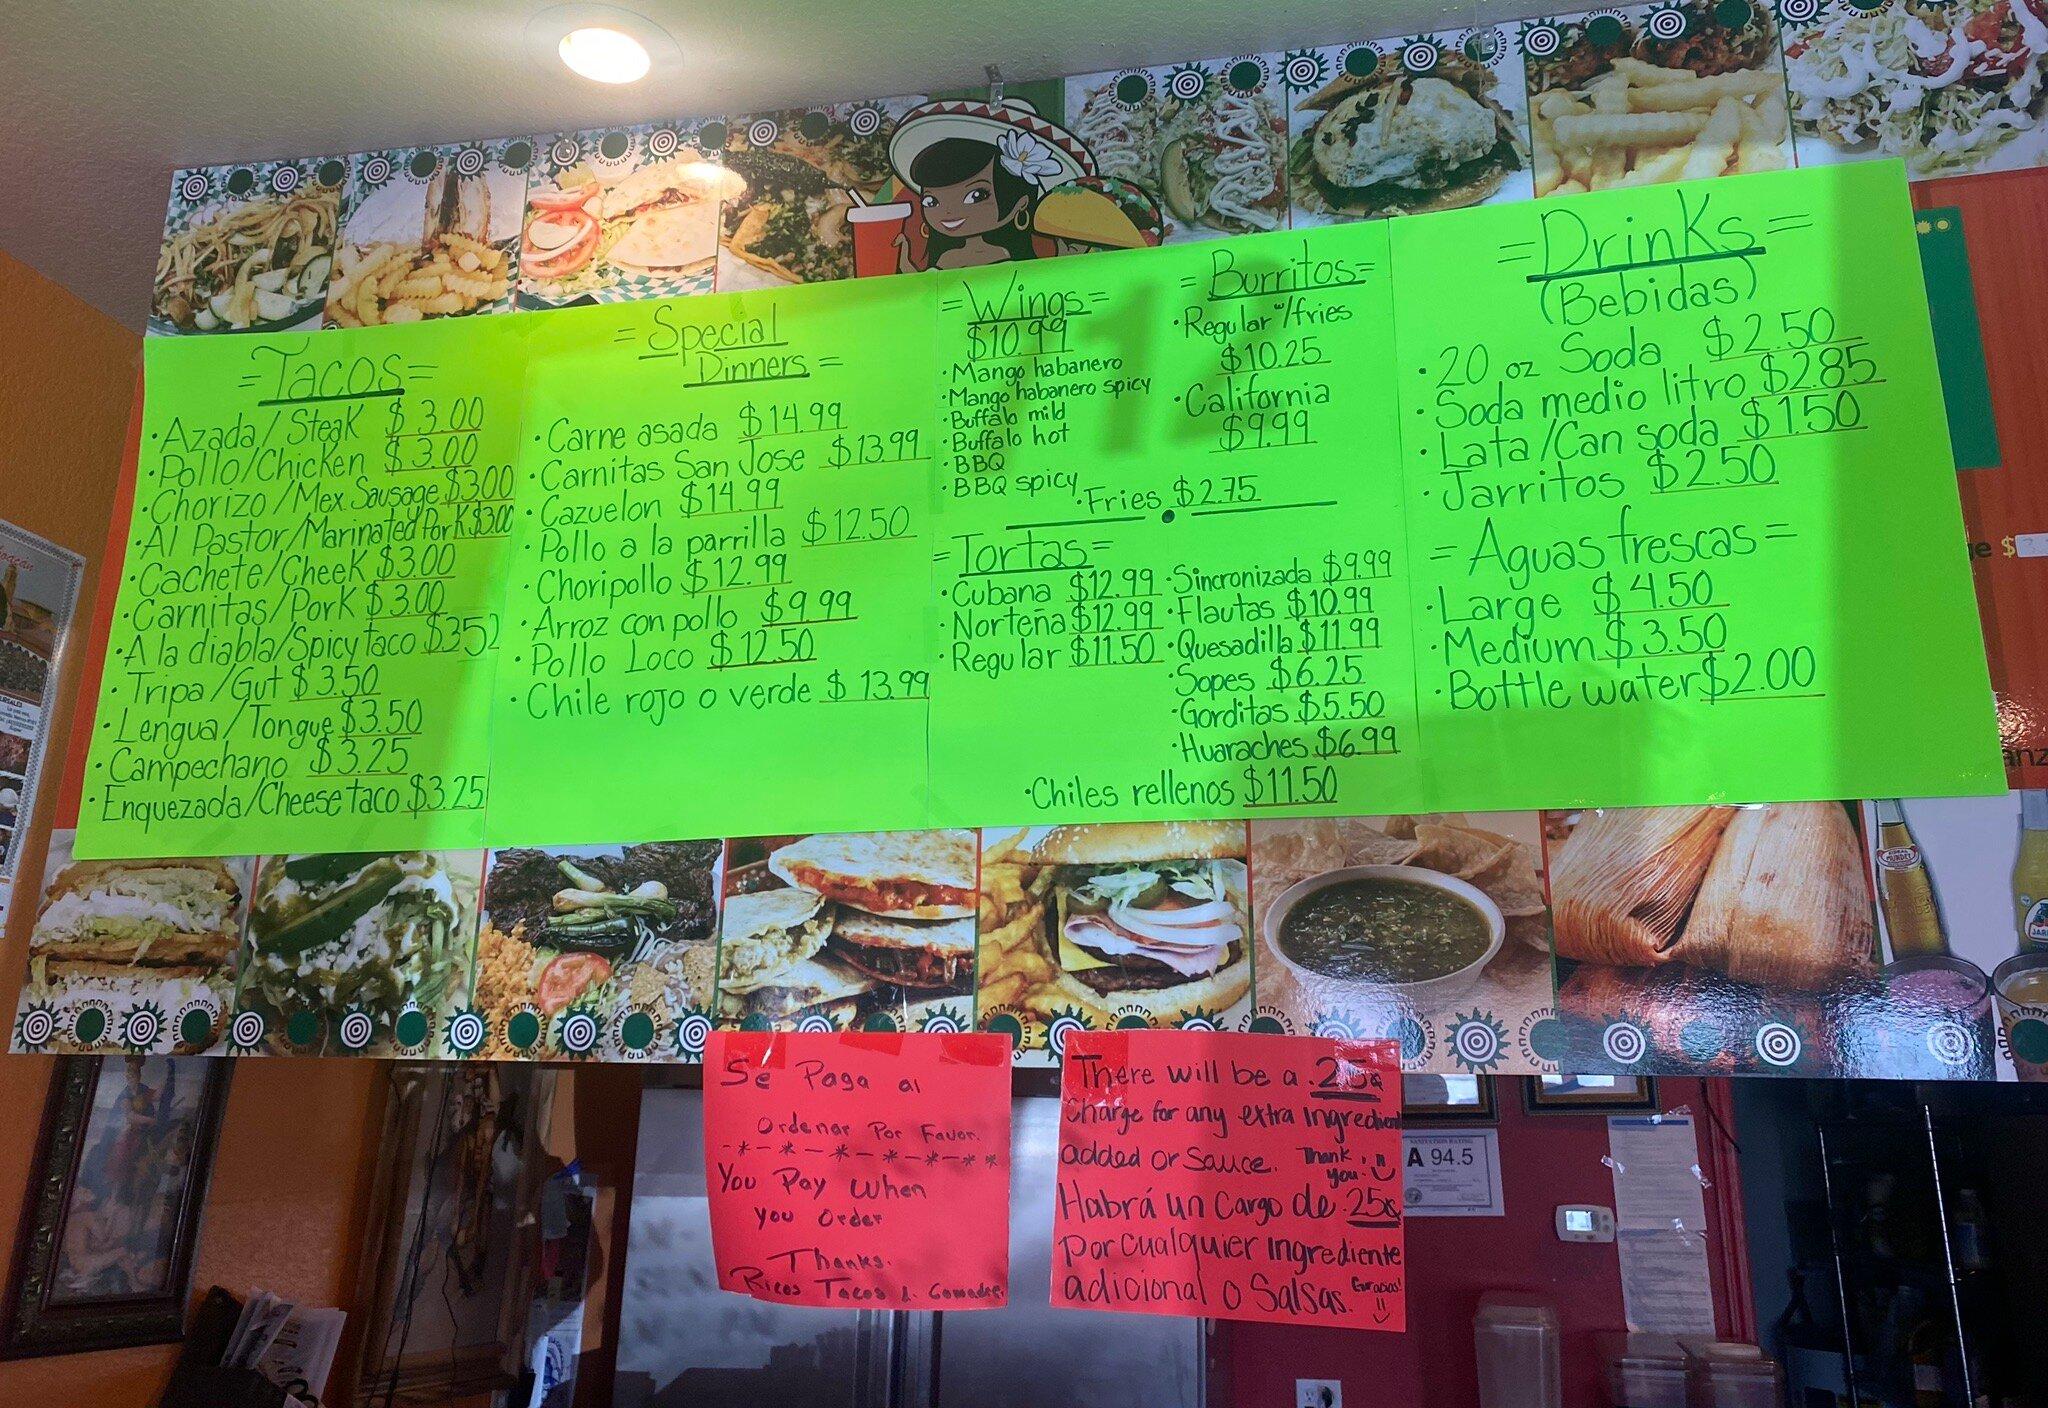 =Tacos=
•Azada/Steak $3.00
•Pollo/Chicken $3.00
•Chorizo/Mex. Sausage $3.00
•Al Pastor/Marinated Pork $3.00
•Cachete/Cheek $3.00
•Carnitas/Pork $3.00
•A la diabla/Spicy taco $3.52
•Tripa/Gut $3.50
•Lengua/Tongue $3.50
•Campechano $3.25
•Enquezada/Cheese taco $3.25
=Special
Dinners=
•Carne asada $14.99
•Carnitas San Jose $13.99
•Cazuelon $14.99
•Pollo a la parrilla $12.50
•Choripollo $12.99
•Arroz con pollo $9.99
•Pollo Loco $12.50
•Chile rojo o verde $13.99
=Wings=
$10.99
•Mango habanero
•Mango habanero spicy
•Buffalo mild
•Buffalo hot
•BBQ
•BBQ spicy
12
=Burritos=
•Regular w/fries
$10.25
•California
$9.99
•Fries $2.75
=Tortas=
•Cubana $12.99
•Norteña $12.99
•Regular $11.50
•Sincronizada $9.99
•Flautas $10.99
•Quesadilla $11.99
•Sopes $6.25
•Gorditas $5.50
•Huaraches $6.99
•Chiles rellenos $11.50
=Drinks=
(Bebidas)
•20 oz Soda $2.50
•Soda medio litro $2.85
•Lata/Can soda $1.50
•Jarritos $2.50
=Aguas frescas=
•Large $4.50
•Medium $3.50
•Bottle water $2.00
Se Paga al
Ordenar Por Favor.
-*-*-*-*-*-**
You Pay When
you Order
Thanks.
Ricos Tacos
There will be a .25¢
Charge for any extra ingredient
added or sauce. Thank
you!
Habrá un cargo de .25¢
por cualquier ingrediente
adicional o Salsas. Gracias!
SANITATION RATING
A 94.5